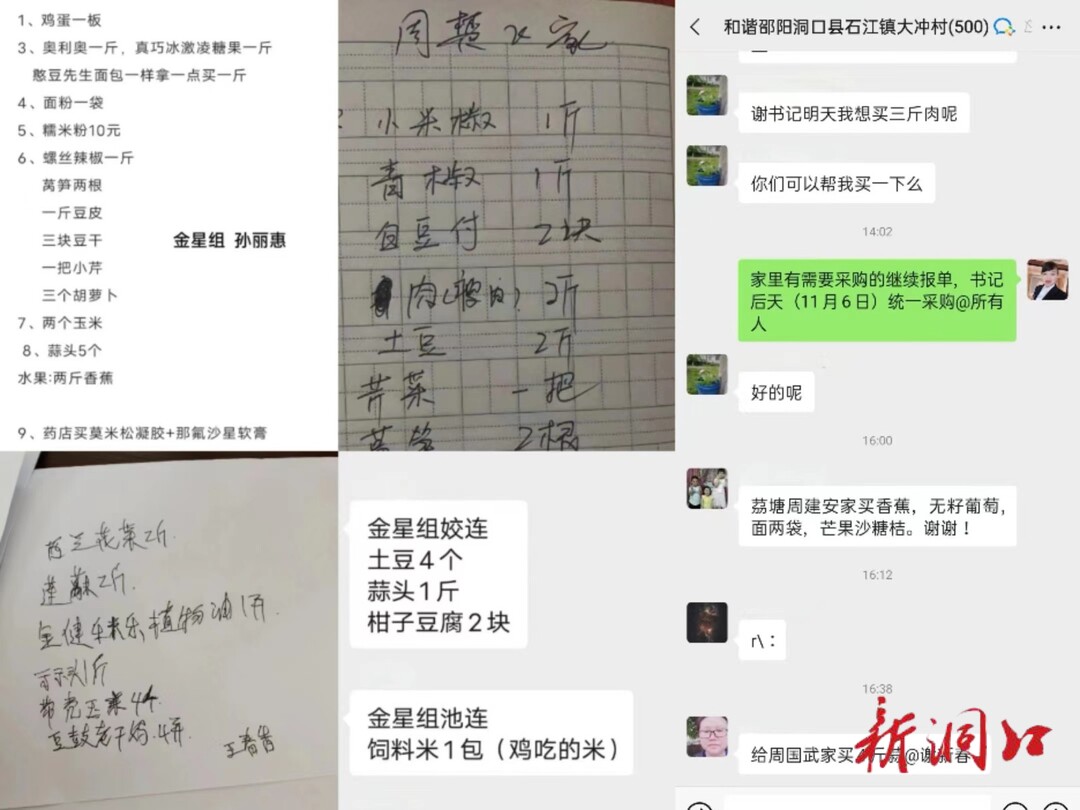 1、鸡蛋一板
3、奥利奥一斤，真巧冰激凌糖果一斤
憨豆先生面包一样拿一点买一斤
4、面粉一袋
5、糯米粉10元
6、螺丝辣椒一斤
莴笋两根
一斤豆皮
三块豆干
一把小芹
三个胡萝卜
7、两个玉米
8、蒜头5个
水果:两斤香蕉
9、药店买莫米松凝胶+那氟沙星软膏
金星组 孙丽惠
小米椒 1斤
青椒 1斤
白豆付 2块
土豆 2斤
芹菜 一把
2根
和谐邵阳洞口县石江镇大冲村(500)
谢书记明天我想买三斤肉呢
你们可以帮我买一下么
14:02
家里有需要采购的继续报单，书记
后天（11月6日）统一采购@所有
人
好的呢
16:00
荔塘周建安家买香蕉，无籽葡萄，
面两袋，芒果沙糖桔。谢谢！
16:12
r\：
16:38
给周国武家买
新洞口
西兰花菜2斤.
莲藕2斤.
植物油1瓶.
金星组姣连
土豆4个
蒜头1斤
柑子豆腐2块
金星组池连
饲料米1包（鸡吃的米）